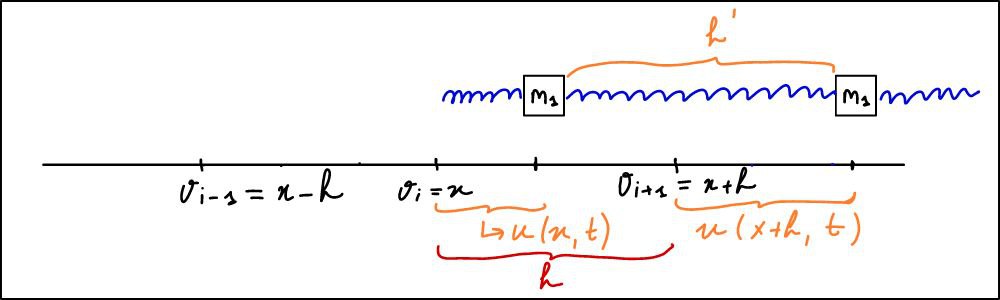 h'
m₁ m₁
v_{i-1} = x-h v_i = x v_{i+1} = x+h
↳ u(x,t) u(x+h, t)
h